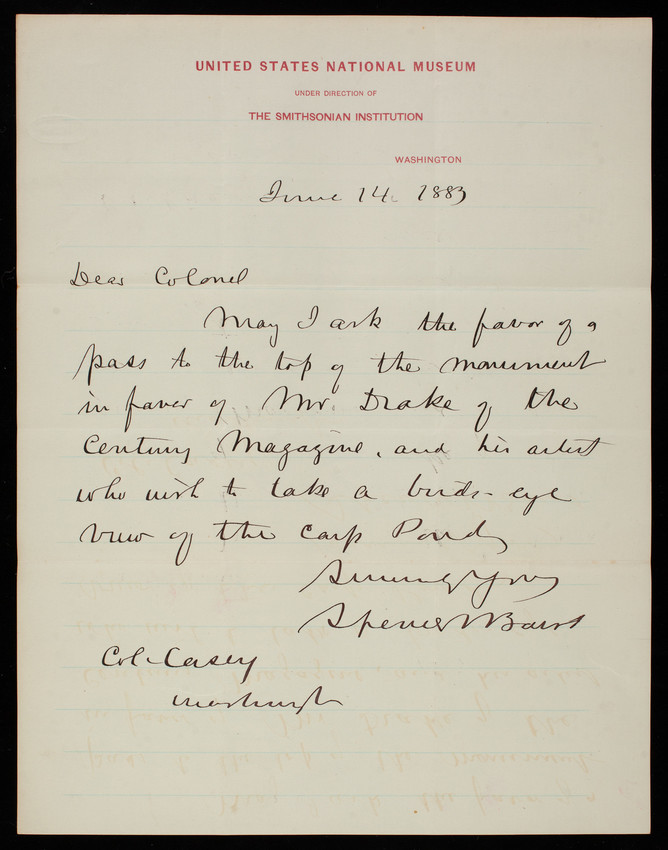 UNITED STATES NATIONAL MUSEUM
UNDER DIRECTION OF
THE SMITHSONIAN INSTITUTION
WASHINGTON
June 14. 1883
Dear Colonel
May I ask the favor of a
pass to the top of the monument
in favor of Mr. Drake of the
Century Magazine, and his artist
who wish to take a birds-eye
view of the Carp Ponds
Sincerely Yours
Spencer F Baird
Col. Casey
Washington